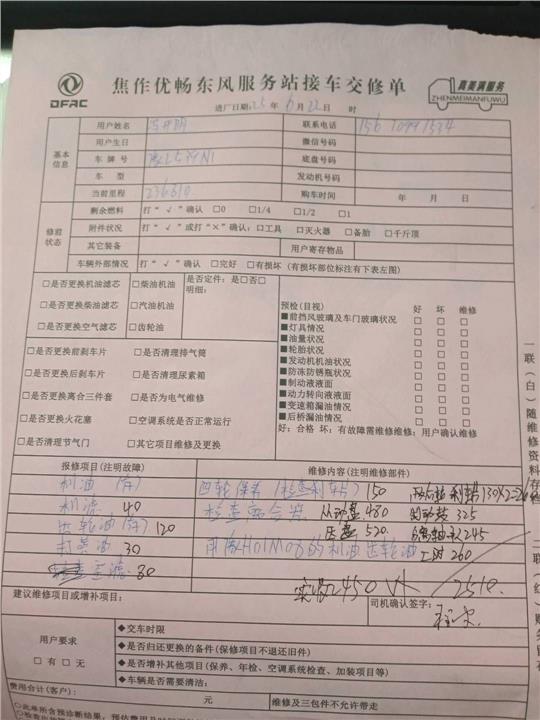 DFAC 焦作优畅东风服务站接车交修单 真美满服务 ZHENMEIMANFUWU
进厂日期:25年6月22日 时
基本信息
用户姓名 联系电话
用户生日 微信号码
车牌号 底盘号码
车型 发动机号码
当前里程 236610 购车时间 年 月 日
修前状态
剩余燃料 打“√”确认 □0 □1/4 □1/2 □1
附件状况 打“√”或打“×”确认:□工具 □灭火器 □备胎 □千斤顶
其它装备 用户寄存物品
车辆外部情况 打“√”确认 □完好 □有损坏(有损坏部位标注有下表左图)
□是否更换机油滤芯 □柴油机油 是否定件:是□否□
明细:
□是否更换柴油滤芯 □汽油机油
□是否更换空气滤芯 □齿轮油
□是否更换前刹车片 □是否清理排气筒
□是否更换后刹车片 □是否清理尿素箱
□是否更换离合三件套 □是否为电气维修
□是否更换火花塞 □空调系统是否正常运行
□是否清理节气门 □其它项目维修及更换
预检(目视) 好 坏 维修
■前挡风玻璃及车门玻璃状况 □ □ □
■灯具情况 □ □ □
■油量状况 □ □ □
■轮胎状况 □ □ □
■发动机机油状况 □ □ □
■防冻防锈瓶状况 □ □ □
■制动液液面 □ □ □
■动力转向液液面 □ □ □
■变速箱漏油情况 □ □ □
■后桥漏油情况 □ □ □
好:合格 坏:有故障需维修维修:用户确认维修
报修项目(注明故障) 维修内容(注明维修部件)
机油 四轮保养(检查刹车片)150
机滤 40 从动盘 480 325
齿轮油 120 压盘 520 245
打黄油 30 机油 齿轮油 工时 260
空滤 30
实收2450 2510
建议维修项目或增补项目: 司机确认签字:
用户要求
□有 □无
◆交车时限
◆是否归还更换的备件(保修项目不退还旧件)
◆是否增补其他项目(保养、年检、空调系统检查、加装项目等)
◆车辆是否需要清洁:
费用合计(客户): 元 维修及三包件不允许带走
○此单所含预诊断结果,预估费用及
一联(白)随维修资料存
二联(红)